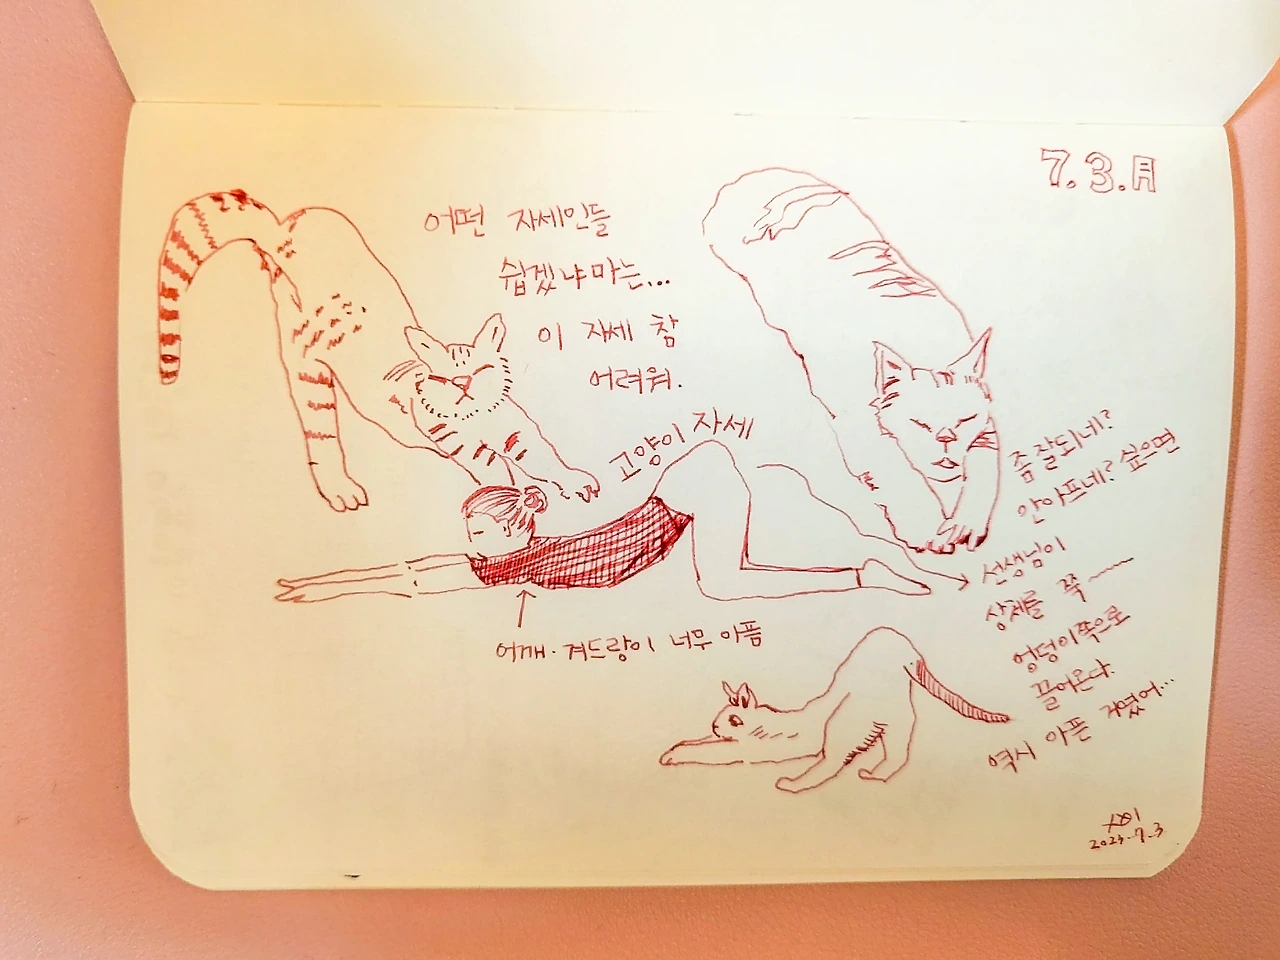 7.3.月
어떤 자세인들
쉽겠냐마는...
이 자세 참
어려워.
고양이 자세
어깨·겨드랑이 너무 아픔
좀 잘되네?
안아프네? 싶으면
선생님이
상체를 쭉
엉덩이쪽으로
끌어온다.
역시 아픈 거였어...
2023-7-3